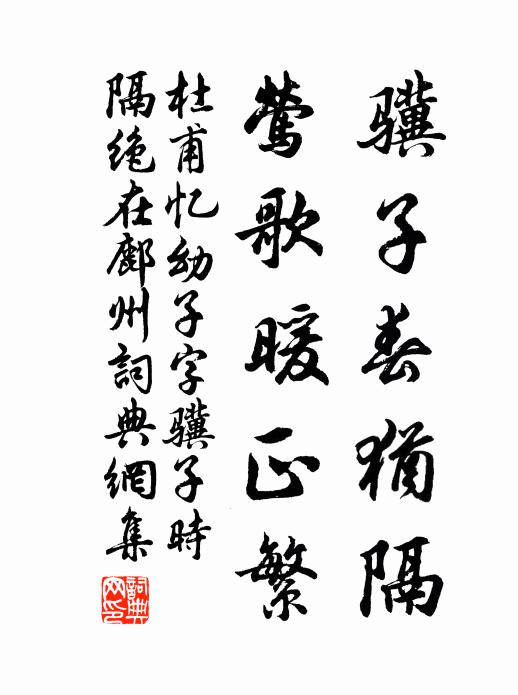 骥子春猶隔
鶯歌暖正繁
杜甫忆幼子字骥子時
隔绝在鄜州詞典網集